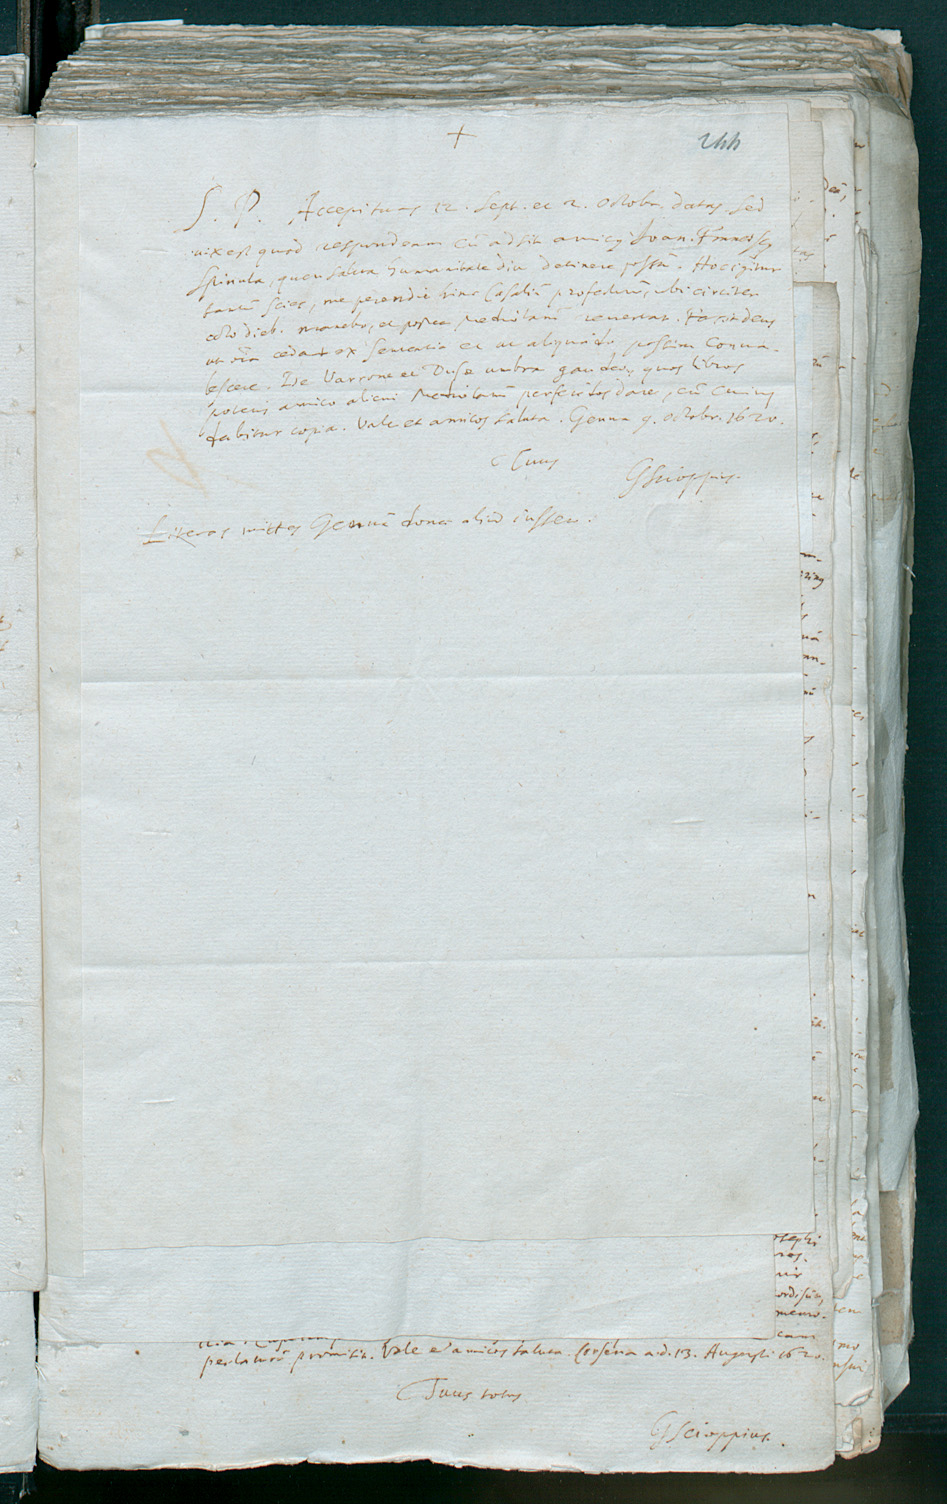 +
244
S. P. Accepi tuas 12. Sept. et 2. Octobr. datas. Sed
vix est quod respondeam cū adsit amicus Ioan. Franciscus
Spinula, quem salva humanitate diu detinere possū. Hoc igitur
tantū scies, me perendie hinc Casaliū profecturū, ubi circiter
octo dieb. manebo, et postea Mediolanū revertar. Faxit deus
ut oīa cedant ex sententia et ut aliquādo possim conva-
lescere. De Varrone et Dusæ umbra gaudeo, quos libros
poteris amico alicui Mediolanū dare, cū cuius
dabitur copia. Vale et amicos saluta. Genua 9. Octobr. 1620.
Tuus
GScioppius.
Literas mittes Genuā donec aliud iussero.
promisit. Vale et amicos saluta. Corsena a.d. 13. Augusti 1620.
Tuus totus
GScioppius.